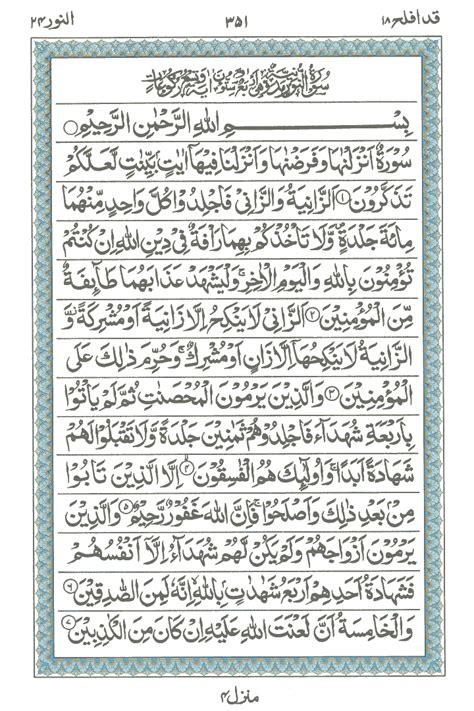 قد افلح ۱۸ ۳۵۱ النور ۲۴
سُوْرَةُ النُّوْرِ مَدَنِيَّةٌ وَّهِىَ اَرْبَعٌ وَّسِتُّوْنَ اٰيَةً وَّتِسْعُ رُكُوْعَاتٍ
بِسْمِ اللهِ الرَّحْمٰنِ الرَّحِيْمِ
سُوْرَةٌ اَنْزَلْنٰهَا وَفَرَضْنٰهَا وَاَنْزَلْنَا فِيْهَاۤ اٰيٰتٍۭ بَيِّنٰتٍ لَّعَلَّكُمْ
تَذَكَّرُوْنَ ۱ اَلزَّانِيَةُ وَالزَّانِىْ فَاجْلِدُوْا كُلَّ وَاحِدٍ مِّنْهُمَا
مِائَةَ جَلْدَةٍ وَّلَا تَاْخُذْكُمْ بِهِمَا رَاْفَةٌ فِىْ دِيْنِ اللهِ اِنْ كُنْتُمْ
تُؤْمِنُوْنَ بِاللهِ وَالْيَوْمِ الْاٰخِرِ ۚ وَلْيَشْهَدْ عَذَابَهُمَا طَآئِفَةٌ
مِّنَ الْمُؤْمِنِيْنَ ۲ اَلزَّانِىْ لَا يَنْكِحُ اِلَّا زَانِيَةً اَوْ مُشْرِكَةً ؗ وَّ
الزَّانِيَةُ لَا يَنْكِحُهَاۤ اِلَّا زَانٍ اَوْ مُشْرِكٌ ۚ وَحُرِّمَ ذٰلِكَ عَلَى
الْمُؤْمِنِيْنَ ۳ وَالَّذِيْنَ يَرْمُوْنَ الْمُحْصَنٰتِ ثُمَّ لَمْ يَاْتُوْا
بِاَرْبَعَةِ شُهَدَآءَ فَاجْلِدُوْهُمْ ثَمٰنِيْنَ جَلْدَةً وَّلَا تَقْبَلُوْا لَهُمْ
شَهَادَةً اَبَدًا ۚ وَاُولٰٓئِكَ هُمُ الْفٰسِقُوْنَ ۴ اِلَّا الَّذِيْنَ تَابُوْا
مِنْۢ بَعْدِ ذٰلِكَ وَاَصْلَحُوْا ۚ فَاِنَّ اللهَ غَفُوْرٌ رَّحِيْمٌ ۵ وَالَّذِيْنَ
يَرْمُوْنَ اَزْوَاجَهُمْ وَلَمْ يَكُنْ لَّهُمْ شُهَدَآءُ اِلَّاۤ اَنْفُسُهُمْ
فَشَهَادَةُ اَحَدِهِمْ اَرْبَعُ شَهٰدٰتٍۭ بِاللهِ ۙ اِنَّهٗ لَمِنَ الصّٰدِقِيْنَ ۶
وَالْخَامِسَةُ اَنَّ لَعْنَتَ اللهِ عَلَيْهِ اِنْ كَانَ مِنَ الْكٰذِبِيْنَ ۷
منزل ۴